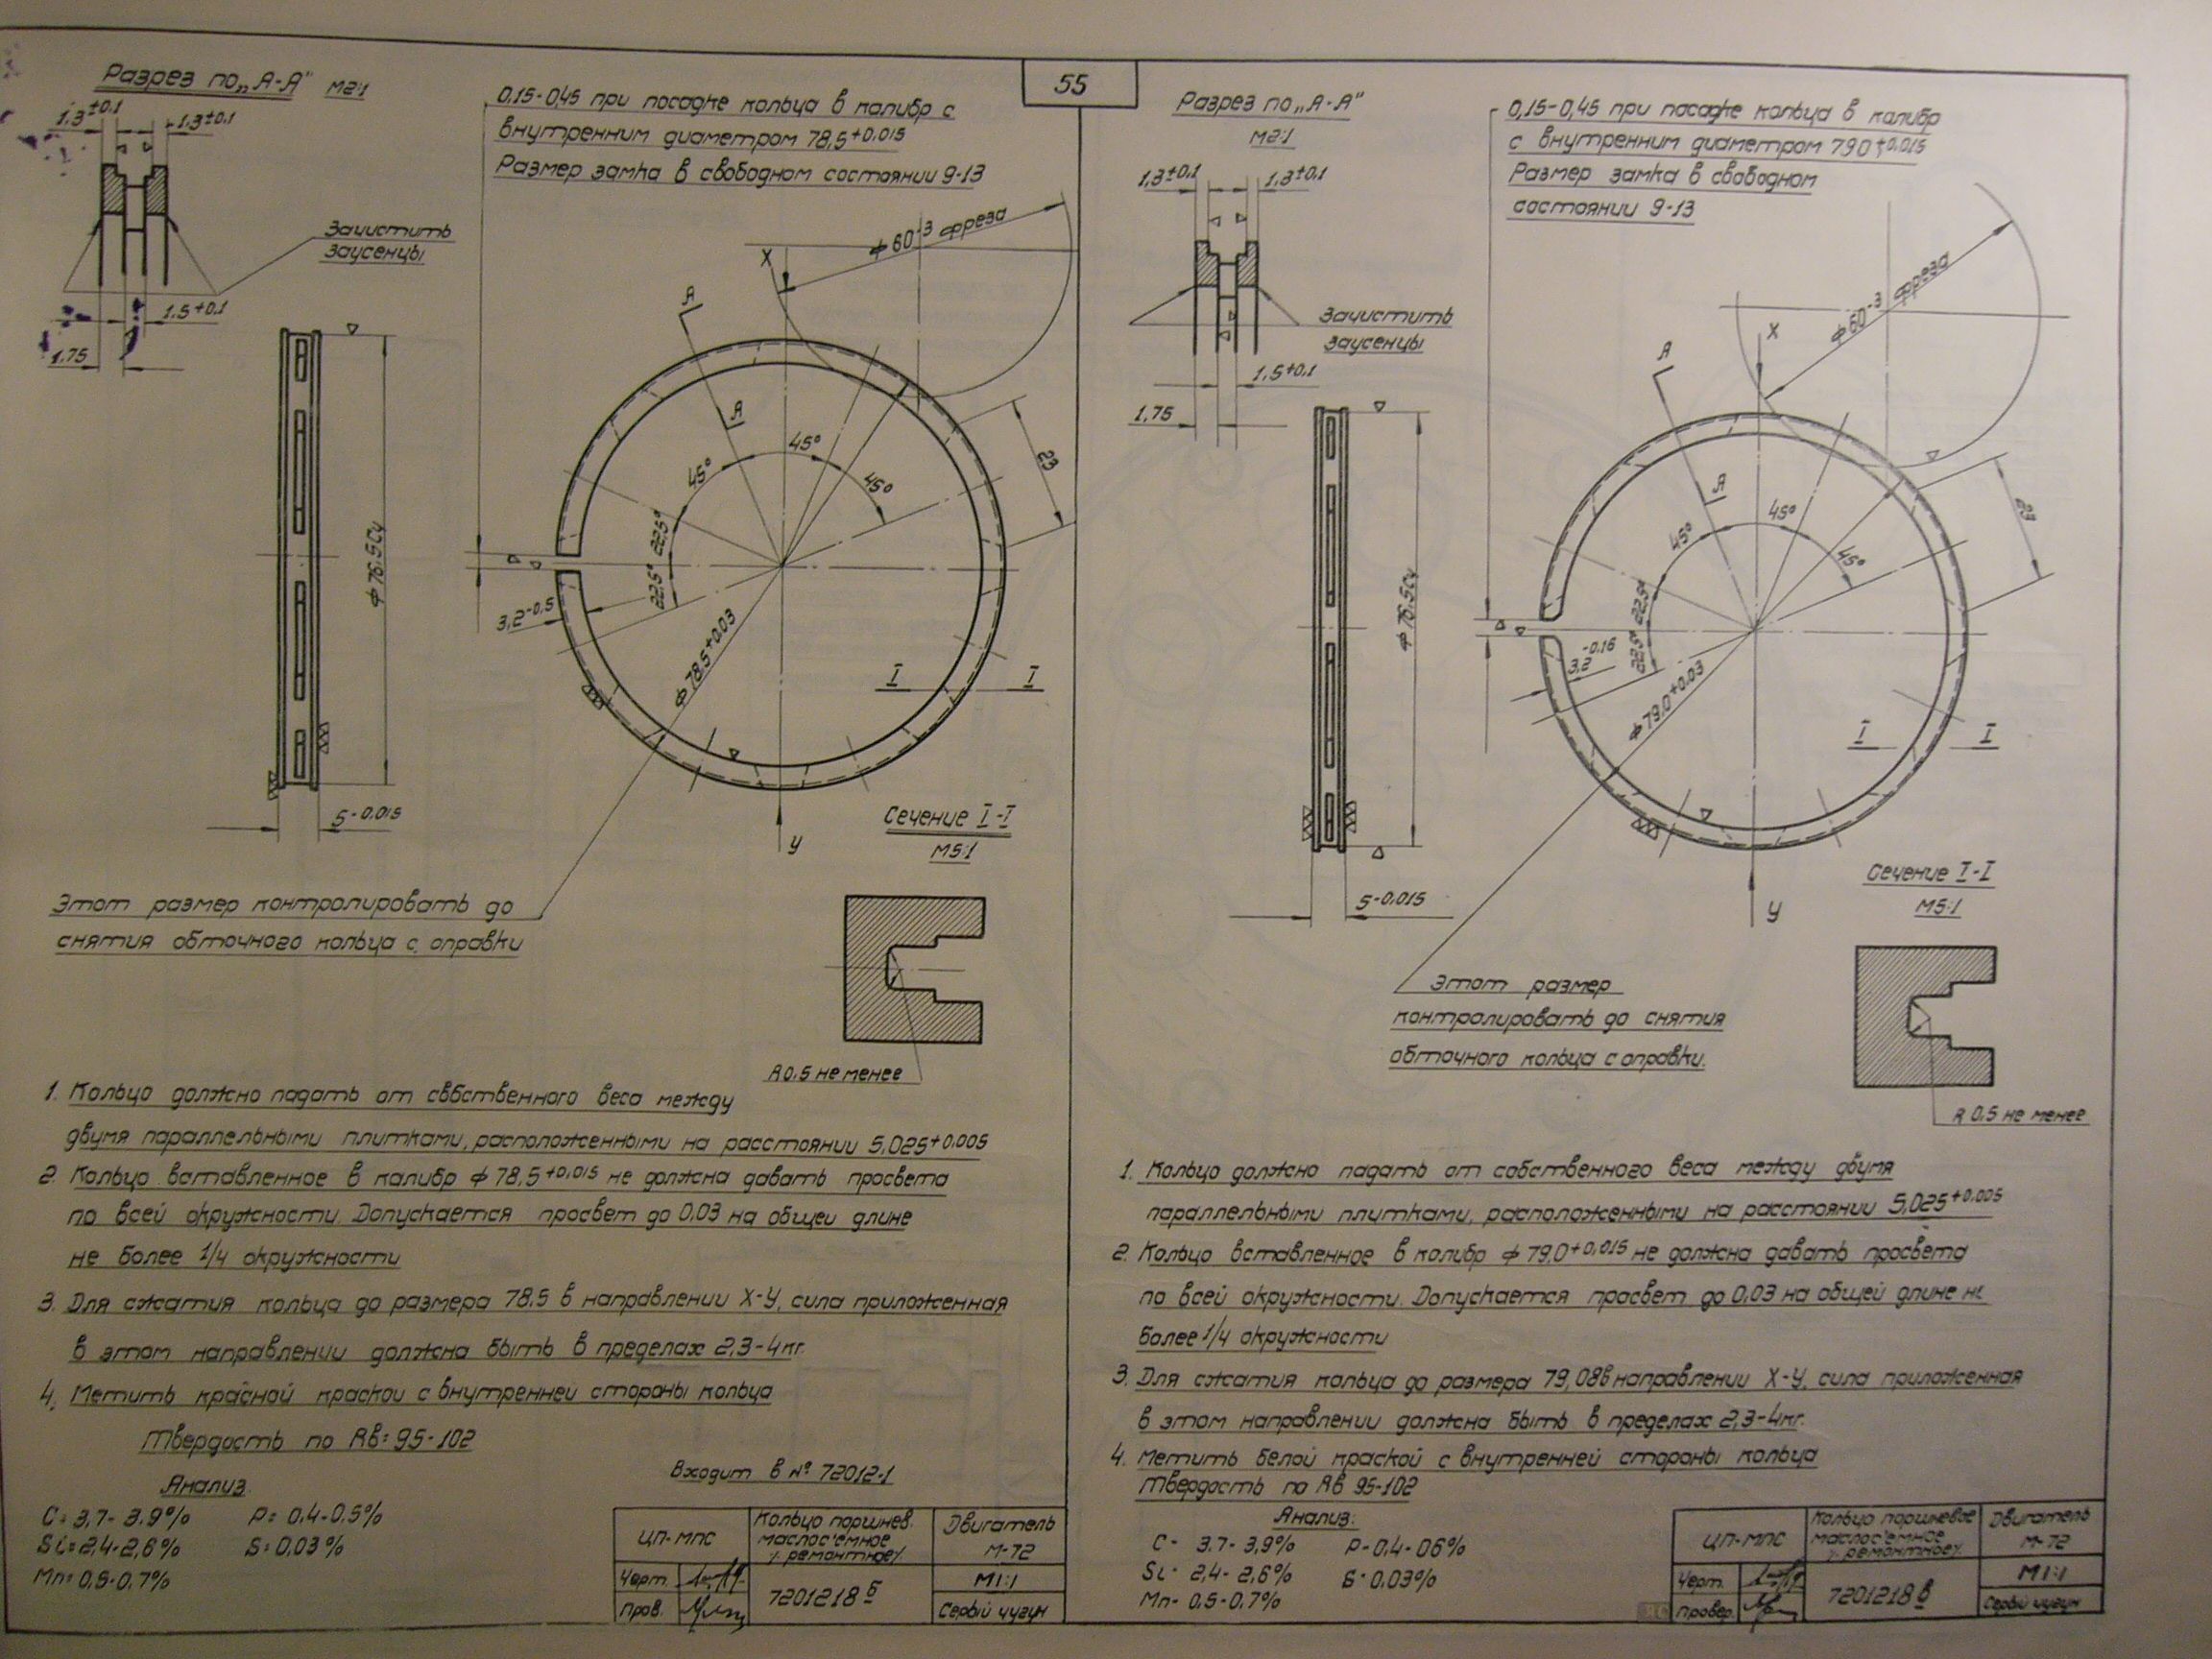 55
Разрез по „А-А" М2:1
1,3±0,1
1,3±0,1
Зачистить
заусенцы
1,5+0,1
1,75
0,15-0,45 при посадке кольца в калибр с
внутренним диаметром 78,5+0,015
Размер замка в свободном состоянии 9-13
ф60-3 фреза
X
А
А
45°
45°
45°
22,5°
22,5°
23
ф76,5С4
3,2-0,5
ф78,5+0,03
I
I
5-0,015
У
Сечение I-I
М5:1
Этот размер контролировать до
снятия обточного кольца с оправки
R0,5 не менее
1. Кольцо должно падать от свбственного веса между
двумя параллельными плитками, расположенными на расстоянии 5,025+0,005
2. Кольцо вставленное в калибр ф78,5+0,015 не должна давать просвета
по всей окружности. Допускается просвет до 0,03 на общей длине
не более 1/4 окружности
3. Для сжатия кольца до размера 78,5 в направлении X-У, сила приложенная
в этом направлении должна быть в пределах 2,3-4кг.
4. Метить красной краской с внутренней стороны кольца
Твердость по Rв=95-102
Анализ
С=3,7-3,9% Р=0,4-0,5%
Si=2,4-2,6% S=0,03%
Mn=0,5-0,7%
Входит в № 72012-1
ЦП-МПС
Кольцо поршнев.
маслос'емное
/ремонтное/
Двигатель
М-72
Черт.
М1:1
Пров.
7201218 б
Серый чугун
Разрез по „А-А"
М2:1
1,3±0,1
1,3±0,1
Зачистить
заусенцы
1,5+0,1
1,75
0,15-0,45 при посадке кольца в калибр
с внутренним диаметром 79,0+0,015
Размер замка в свободном
состоянии 9-13
ф60-3 фреза
X
А
А
45°
45°
45°
22,5°
22,5°
23
ф76,5С4
3,2-0,16
ф79,0+0,03
I
I
5-0,015
У
Сечение I-I
М5:1
Этот размер
контролировать до снятия
обточного кольца с оправки.
R 0,5 не менее
1. Кольцо должно падать от собственного веса между двумя
параллельными плитками, расположенными на расстоянии 5,025+0,005
2. Кольцо вставленное в калибр ф79,0+0,015 не должна давать просвета
по всей окружности. Допускается просвет до 0,03 на общей длине не
более 1/4 окружности
3. Для сжатия кольца до размера 79,08в направлении X-У, сила приложенная
в этом направлении должна быть в пределах 2,3-4кг.
4. Метить белой краской с внутренней стороны кольца
Твердость по Rв 95-102
Анализ:
С- 3,7-3,9% Р-0,4-06%
Si- 2,4-2,6% S-0,03%
Mn- 0,5-0,7%
ЦП-МПС
Кольцо поршневое
маслос'емное
/ремонтное/
Двигатель
М-72
Черт.
М1:1
Провер.
7201218 в
Серый чугун